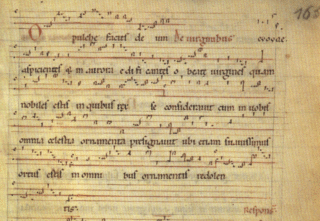 165
O pulchre facies de um De virginibus
aspicientes & in aurora edificantes o beate virgines quam
nobiles estis in quibus rex se consideravit cum in vobis
omnia celestia ornamenta presignavit ubi etiam suavissimus
ortus estis in omnibus ornamentis redolen
tes. Respons